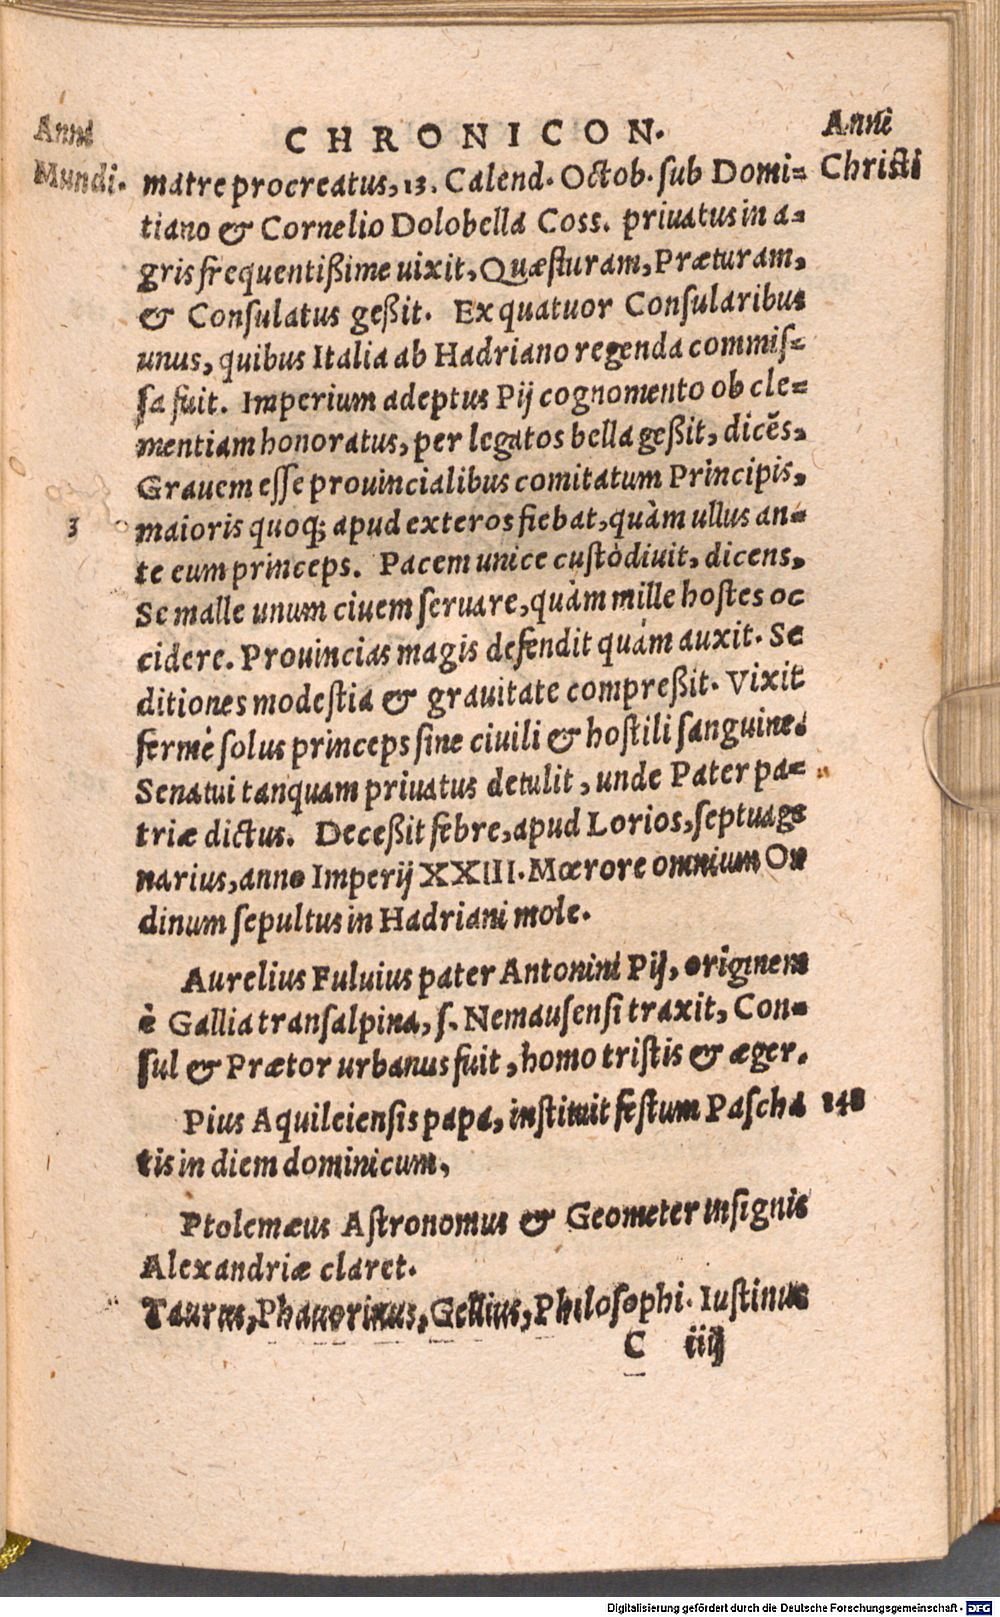 Anni
Mundi.
CHRONICON.
Anni
Christi
matre procreatus, 13. Calend. Octob. sub Domi-
tiano & Cornelio Dolobella Coss. priuatus in a-
gris frequentißime uixit, Quæsturam, Præturam,
& Consulatus geßit. Ex quatuor Consularibus
unus, quibus Italia ab Hadriano regenda commis-
sa fuit. Imperium adeptus Pij cognomento ob cle-
mentiam honoratus, per legatos bella geßit, dicẽs,
Grauem esse prouincialibus comitatum Principis,
3 maioris quoq; apud exteros fiebat, quàm ullus an-
te eum princeps. Pacem unice custodiuit, dicens,
Se malle unum ciuem seruare, quàm mille hostes oc
cidere. Prouincias magis defendit quàm auxit. Se
ditiones modestia & grauitate compreßit. Vixit
fermè solus princeps sine ciuili & hostili sanguine.
Senatui tanquam priuatus detulit, unde Pater pa-
triæ dictus. Deceßit febre, apud Lorios, septuage
narius, anno Imperij XXIII. Mœrore omnium On
dinum sepultus in Hadriani mole.
Aurelius Fuluius pater Antonini Pij, originem
è Gallia transalpina, s. Nemausensi traxit, Con-
sul & Prætor urbanus fuit, homo tristis & æger.
Pius Aquileiensis papa, instituit festum Pascha 148
tis in diem dominicum,
Ptolemæus Astronomus & Geometer insignis
Alexandriæ claret.
Taurus, Phauorinus, Gellius, Philosophi. Iustinus
C iiij
Digitalisierung gefördert durch die Deutsche Forschungsgemeinschaft - DFG